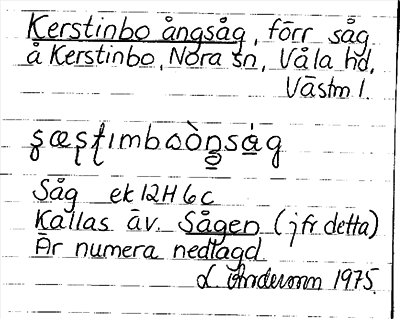 Kerstinbo ångsåg, förr såg
å Kerstinbo, Nora sn, Våla hd,
Västm l.
Såg ek 12H 6c
Kallas äv. Sågen (jfr detta)
Är numera nedlagd
L Andersson 1975.